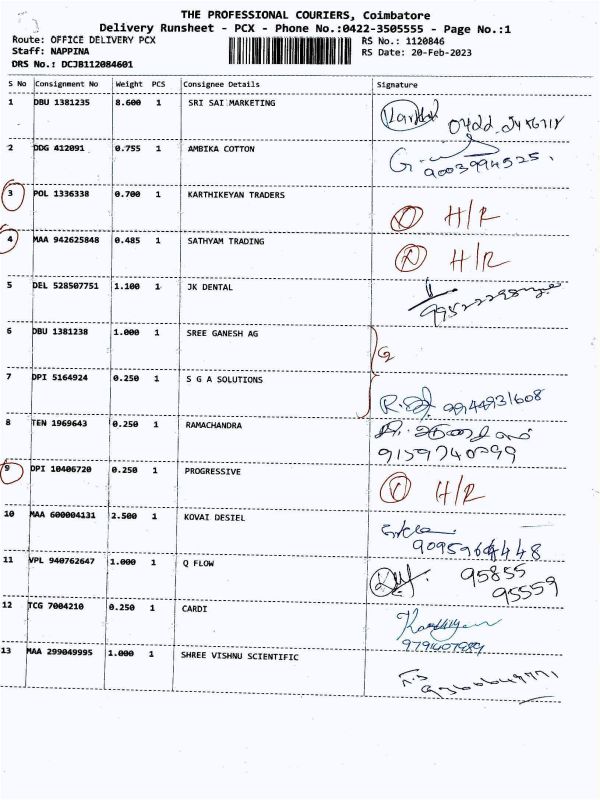 THE PROFESSIONAL COURIERS, Coimbatore
Delivery Runsheet - PCX - Phone No.:0422-3505555 - Page No.:1
Route: OFFICE DELIVERY PCX RS No.: 1120846
Staff: NAPPINA RS Date: 20-Feb-2023
DRS No.: DCJB112084601
S No Consignment No Weight PCS Consignee Details Signature
1 DBU 1381235 8.600 1 SRI SAI MARKETING
2 DDG 412091 0.755 1 AMBIKA COTTON
9003994525.
3 POL 1336338 0.700 1 KARTHIKEYAN TRADERS
H/R
4 MAA 942625848 0.485 1 SATHYAM TRADING
H/R
5 DEL 528507751 1.100 1 JK DENTAL
6 DBU 1381238 1.000 1 SREE GANESH AG
7 DPI 5164924 0.250 1 S G A SOLUTIONS
9944931608
8 TEN 1969643 0.250 1 RAMACHANDRA
9159740099
9 DPI 10406720 0.250 1 PROGRESSIVE
H/R
10 MAA 600004131 2.500 1 KOVAI DESIEL
11 VPL 940762647 1.000 1 Q FLOW
95855
95559
12 TCG 7004210 0.250 1 CARDI
9791407989
13 MAA 299049995 1.000 1 SHREE VISHNU SCIENTIFIC